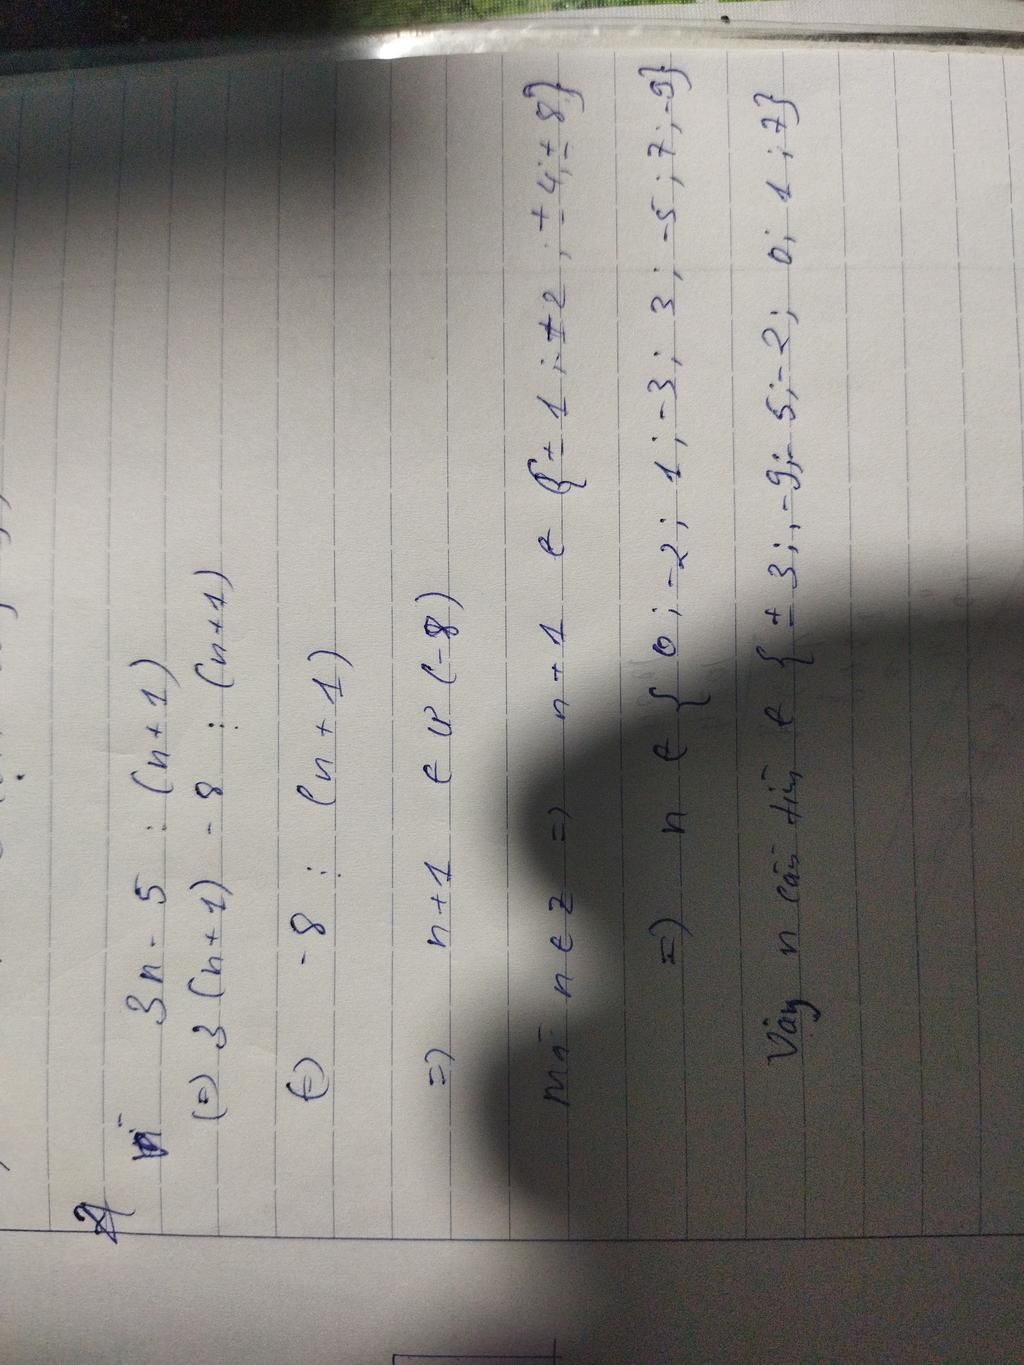 2)
Vì 3n - 5 ⋮ (n+1)
(=) 3(n+1) - 8 ⋮ (n+1)
(=) -8 ⋮ (n+1)
=) n+1 ∈ Ư(-8)
Mà n∈Z =) n+1 ∈ {±1; ±2; ±4; ±8}
=) n ∈ {0; -2; 1; -3; 3; -5; 7; -9}
Vậy n cần tìm ∈ {±3; -9; -5; -2; 0; 1; 7}